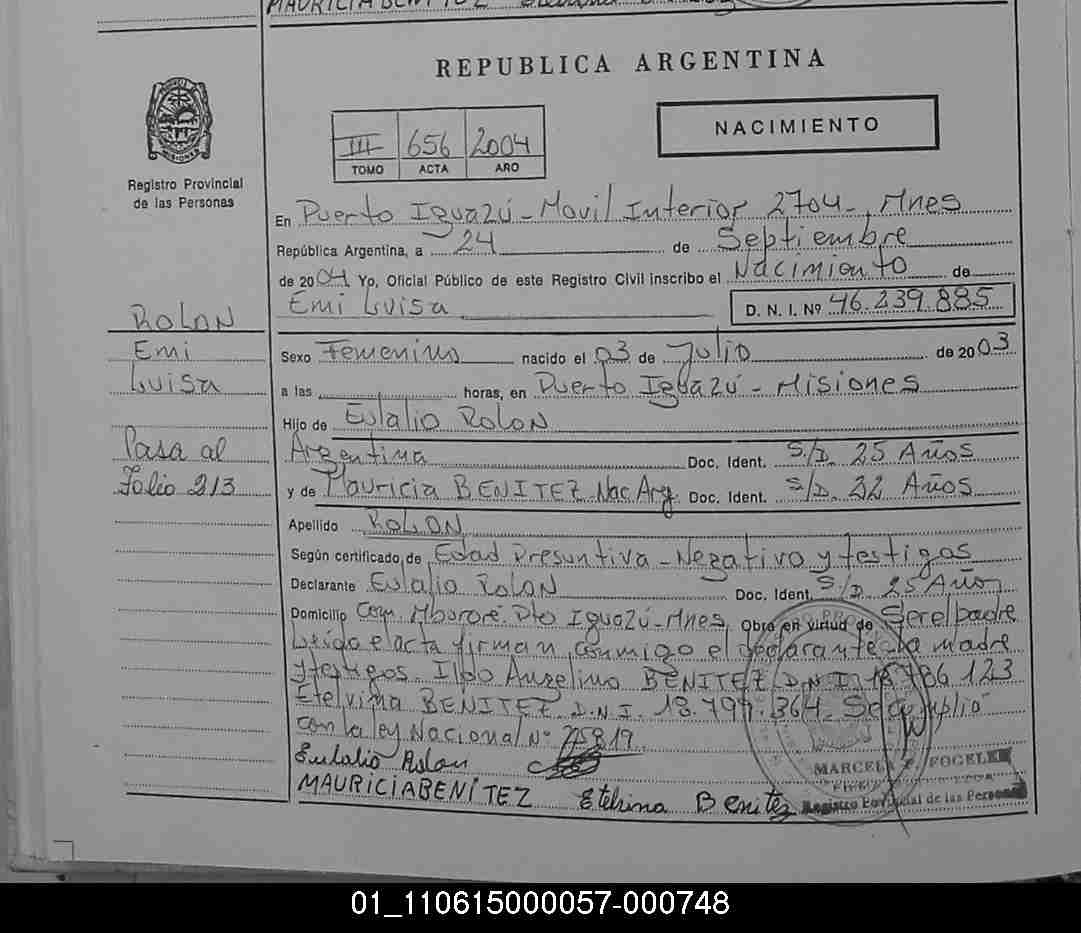 MAURICIA BENITEZ
REPUBLICA ARGENTINA
NACIMIENTO
III 656 2004
TOMO ACTA AÑO
Registro Provincial
de las Personas
En Puerto Iguazú - Movil Interior 2704-, Mnes
República Argentina, a 24 de Septiembre
de 2004 Yo, Oficial Público de este Registro Civil inscribo el Nacimiento de
Emi Luisa D. N. I. Nº 46.239.885
ROLON
Emi
Luisa
Pasa al
Folio 213
Sexo Femenino nacido el 03 de Julio de 2003
a las horas, en Puerto Iguazú - Misiones
Hijo de Eulalio Rolon
Argentina Doc. Ident. S/D. 25 Años
y de Mauricia BENITEZ Nac Arg. Doc. Ident. S/D. 22 Años
Apellido ROLON
Según certificado de Edad Presuntiva - Negativo y testigos
Declarante Eulalio Rolon Doc. Ident. S/D. 25 Años
Domicilio Com. Mbororé. Pto Iguazú-Mnes. Obra en virtud de Ser el padre
Leido el acta firman conmigo el declarante, la madre
y testigos. Ildo Angelino BENITEZ D.N.I. 18.786.123
Etelvina BENITEZ D.N.I. 18.799.364. Se cumplio
con la ley Nacional Nº 25819.
Eulalio Rolon
MAURICIA BENÍTEZ Etelvina Benitez
MARCELA FOGELER
Registro Provincial de las Personas
01_110615000057-000748